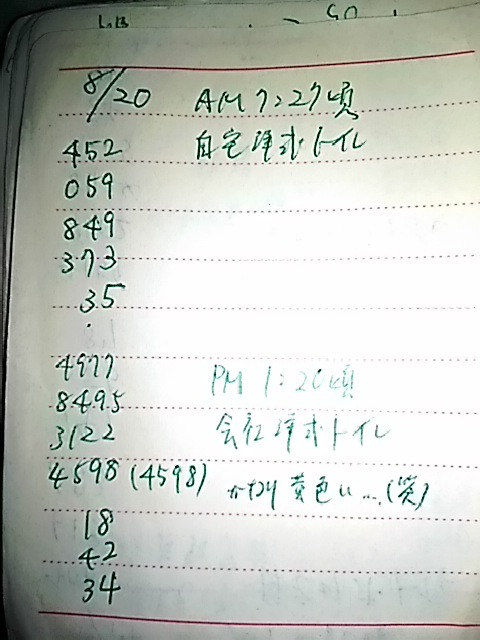 8/20 AM 7:27頃
452 自宅洋式トイレ
059
849
373
35
.
4977 PM 1:20頃
8495 会社洋式トイレ
3122
4598 (4598) かなり黄色い...(笑)
18
42
34